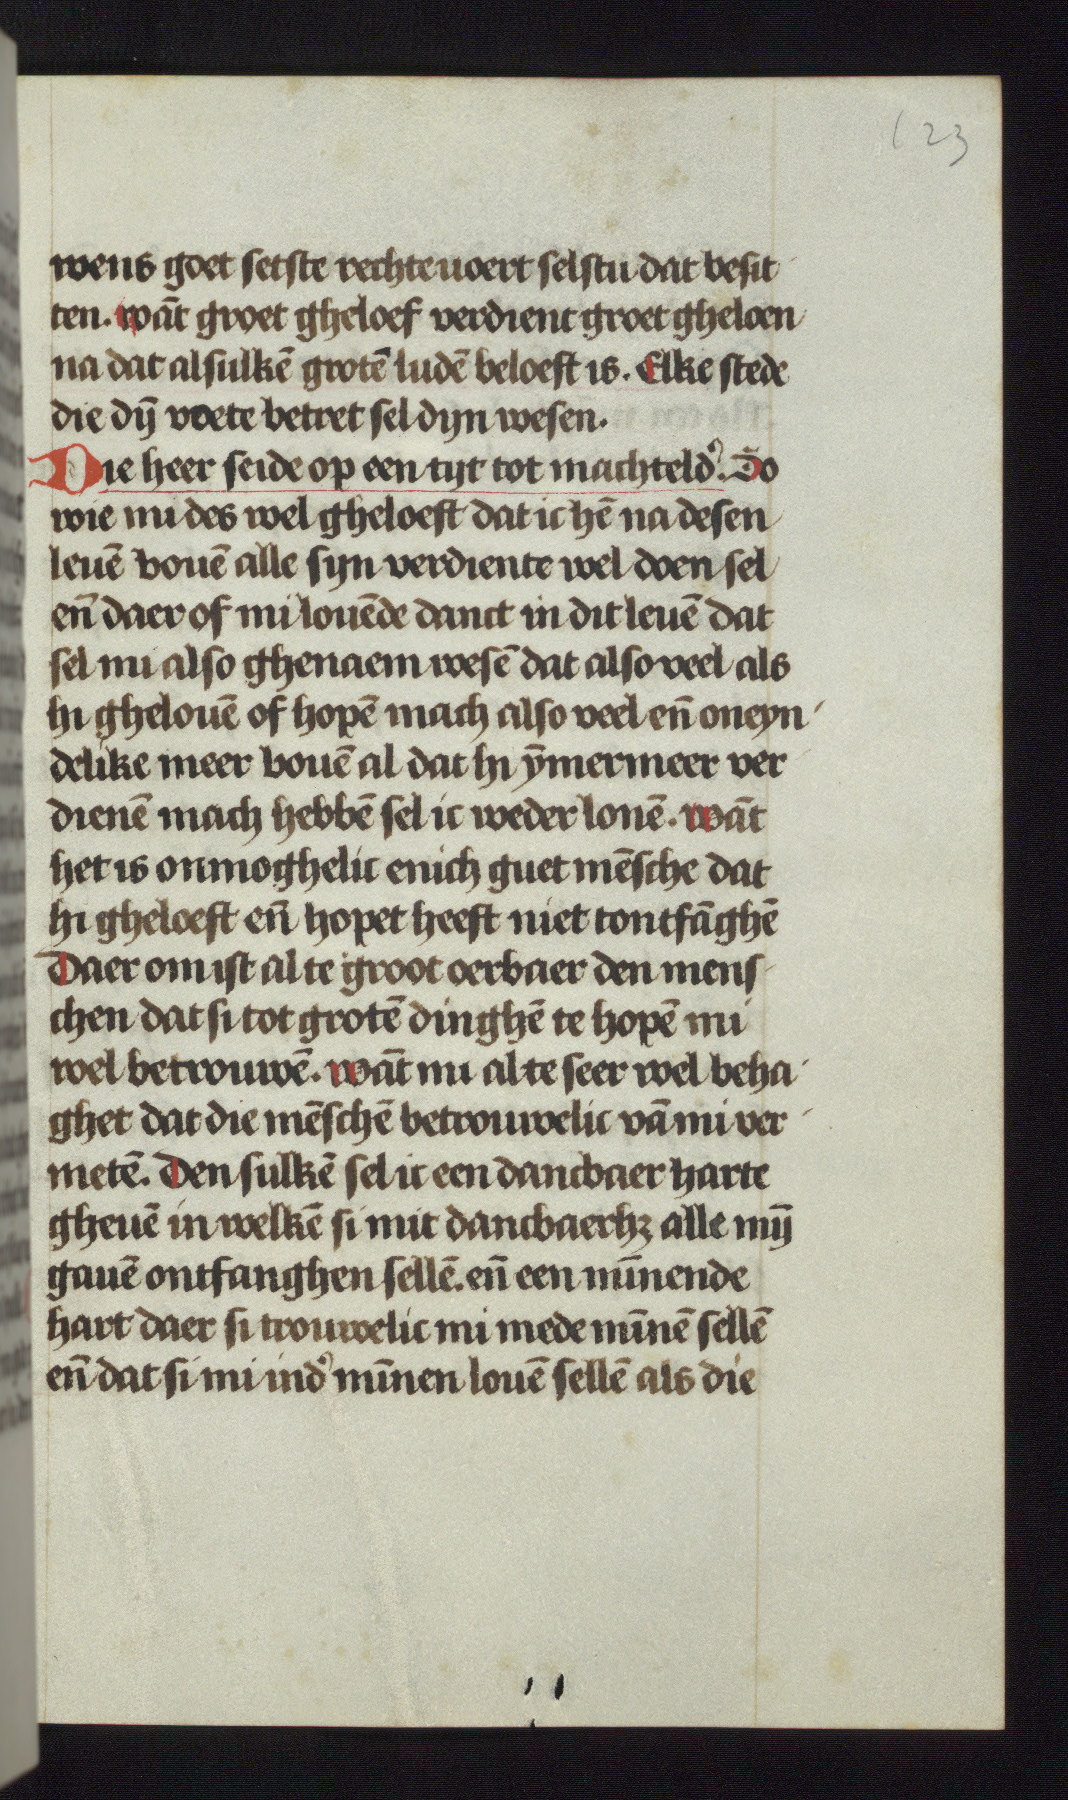 123
wens goet setste rechteuoert selstu dat besit
ten. wāt groet gheloef verdient groet gheloen
na dat alsulkē grotē ludē beloeft is. Elke stede
die dȳ voete betret sel dyn wesen.
Die heer seide op een tyt tot machteld᾽. So
wie mi des wel gheloeft dat ic hē na desen
leuē bouē alle syn verdiente wel doen sel
en̄ daer of mi louēde danct in dit leuē dat
sel mi also ghenaem wesē dat also veel als
hi ghelouē of hopē mach also veel en̄ oneyn
delike meer bouē al dat hi ȳmermeer ver
dienē mach hebbē sel ic weder lonē. wāt
het is onmoghelic enich guet mēsche dat
hi gheloeft en̄ hopet heeft niet tontfāghē
Daer om ist al te groot oerbaer den mens
chen dat si tot grotē dinghē te hopē mi
wel betrouwē. wāt mi al te seer wel beha
ghet dat die mēschē betrouwelic vā mi ver
metē. Den sulkē sel ic een dancbaer harte
gheuē in welkē si mit dancbaerhꝫ alle mȳ
gauē ontfanghen sellē. en̄ een mīnende
hart daer si trouwelic mi mede mīnē sellē
en̄ dat si mi ind᾽ mīnen louē sellē als die